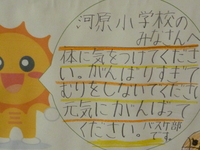 河原小学校の
みなさんへ
体に気をつけてくださ
い。がんばりすぎて
むりをしないでください
元気にがんばって
ください。バスケ部
です。